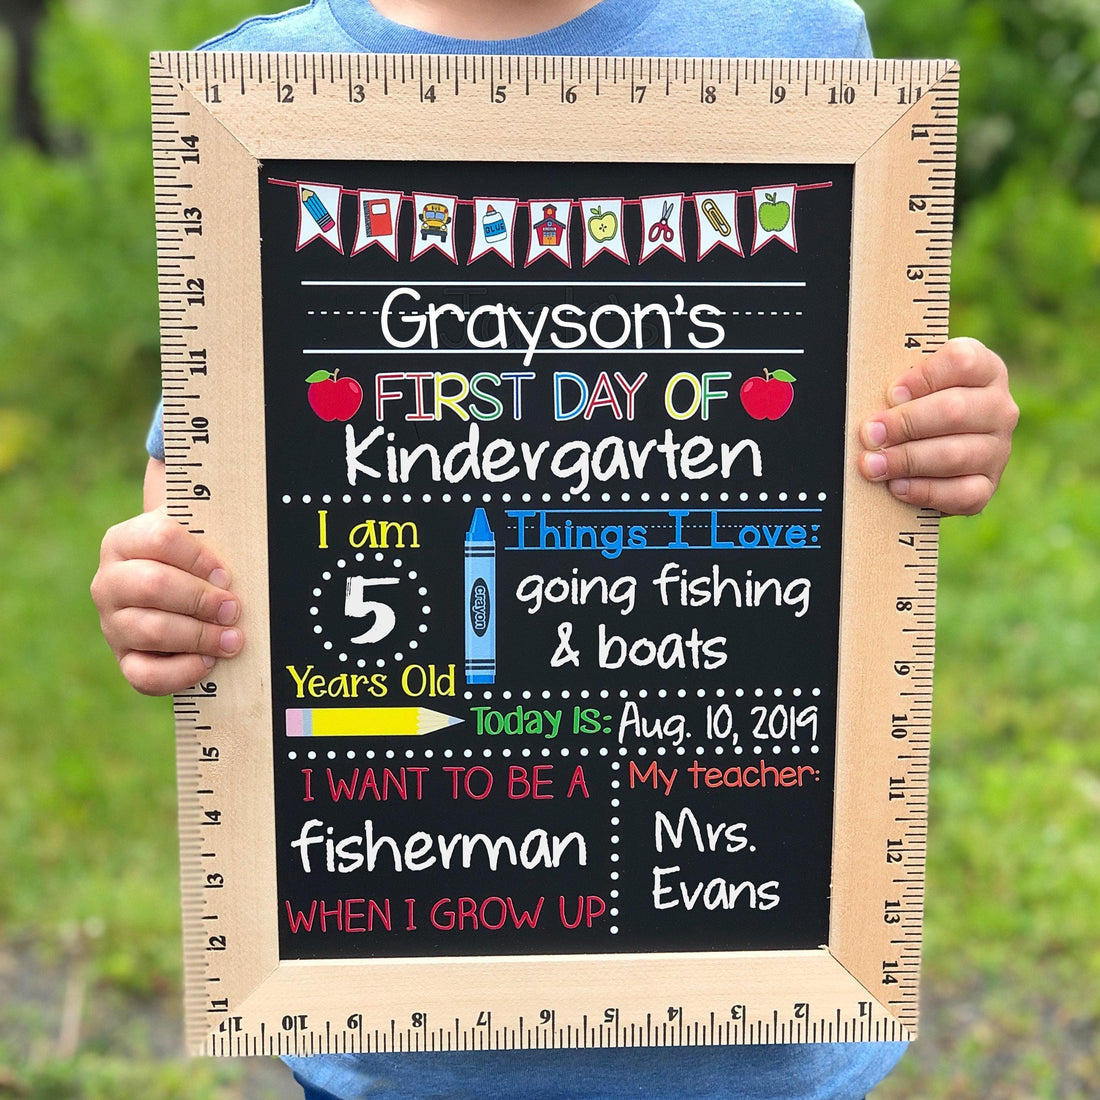 1 2 3 4 5 6 7 8 9 10 11
BUS
GLUE
Grayson's
FIRST DAY OF
Kindergarten
I am
5
Years Old
crayon
Things I Love:
going fishing
& boats
Today Is: Aug. 10, 2019
I WANT TO BE A
fisherman
WHEN I GROW UP
My teacher:
Mrs.
Evans
14 13 12 11 10 9 6 5 4 3 2 1
1 2 3 4 7 8 9 10 11 12 13 14
11 10 9 8 7 6 5 4 3 2 1